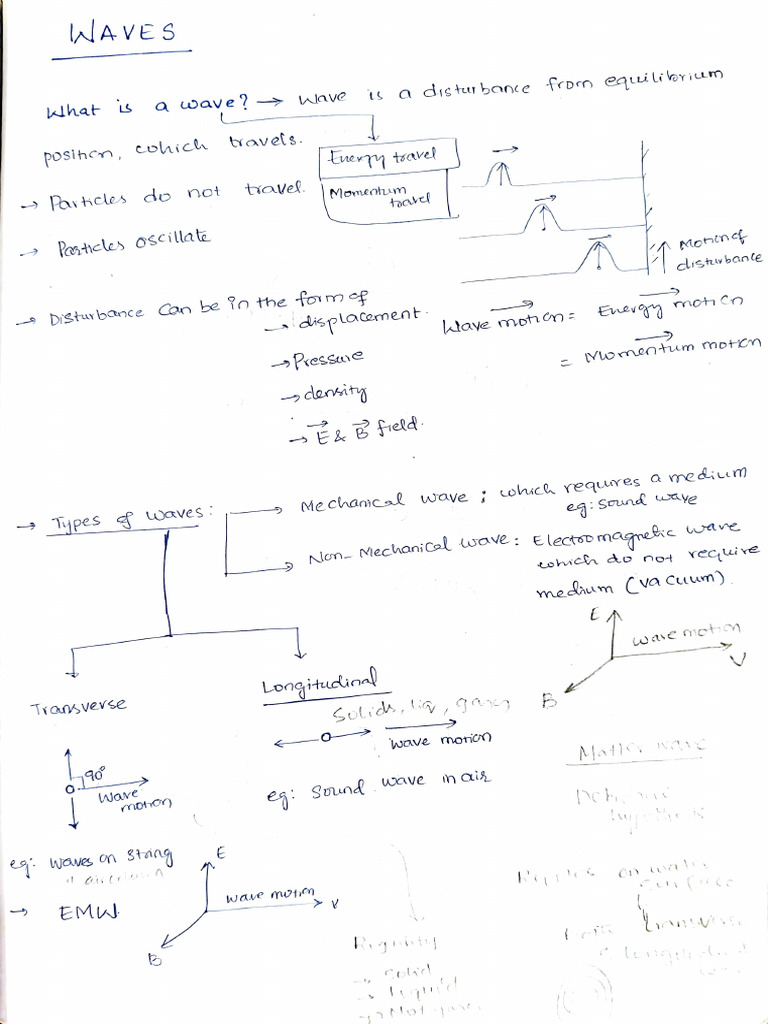 WAVES
What is a wave? → Wave is a disturbance from equilibrium
position, which travels.
Energy travel
Momentum
travel
→ Particles do not travel.
→ Particles oscillate
Motion of
disturbance
→ Disturbance can be in the form of
→ displacement.
→ Pressure
→ density
→ E & B field.
Wave motion = Energy motion
= Momentum motion
→ Types of waves:
Mechanical wave ; which requires a medium
eg: sound wave
Non-Mechanical wave: Electromagnetic wave
which do not require
medium (vacuum).
E
wave motion
V
B
Transverse
90°
Wave
motion
eg: Waves on string
→ EMW.
E
wave motion
V
B
Longitudinal
Solids, liq, gases
wave motion
eg: Sound wave in air
Matter wave
Ripples on water
surface
transverse
Rigidity
→ Solid
→ liquid